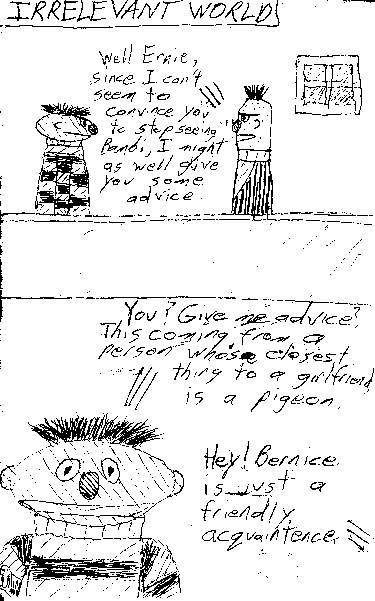 IRRELEVANT WORLD
Well Ernie,
since I can't
seem to
convince you
to stop seeing
Bambi, I might
as well give
you some
advice.
You? Give me advice?
This coming from a
person whose closest
thing to a girlfriend
is a pigeon.
Hey! Bernice
is just a
friendly
acquaintence.